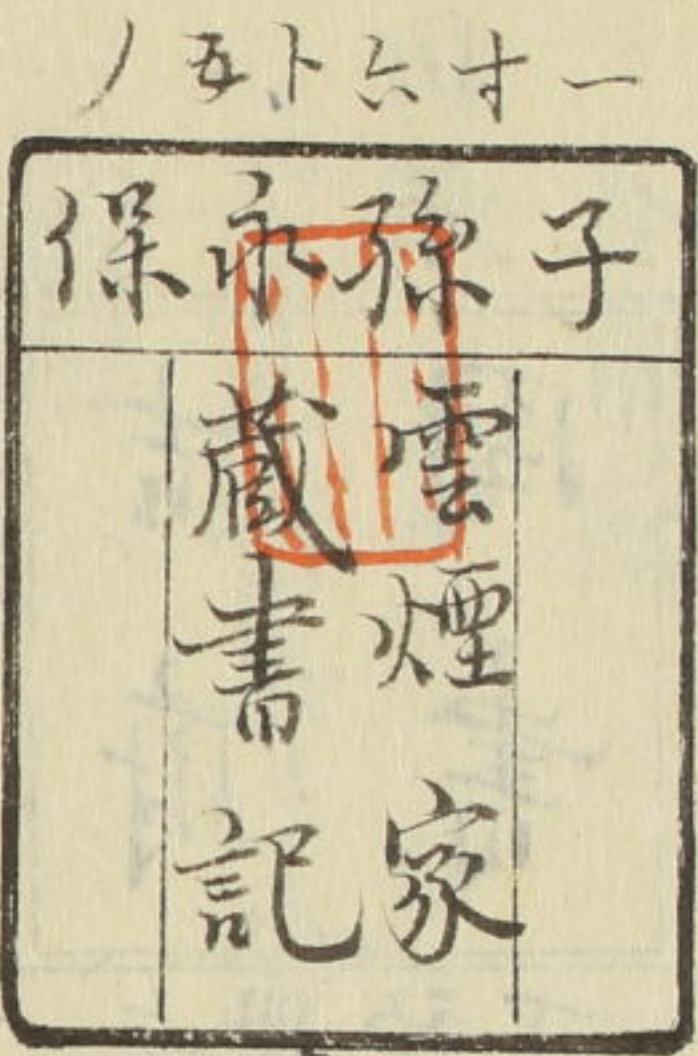 一寸六ト五ノ
子孫永保
雲煙家
蔵書記